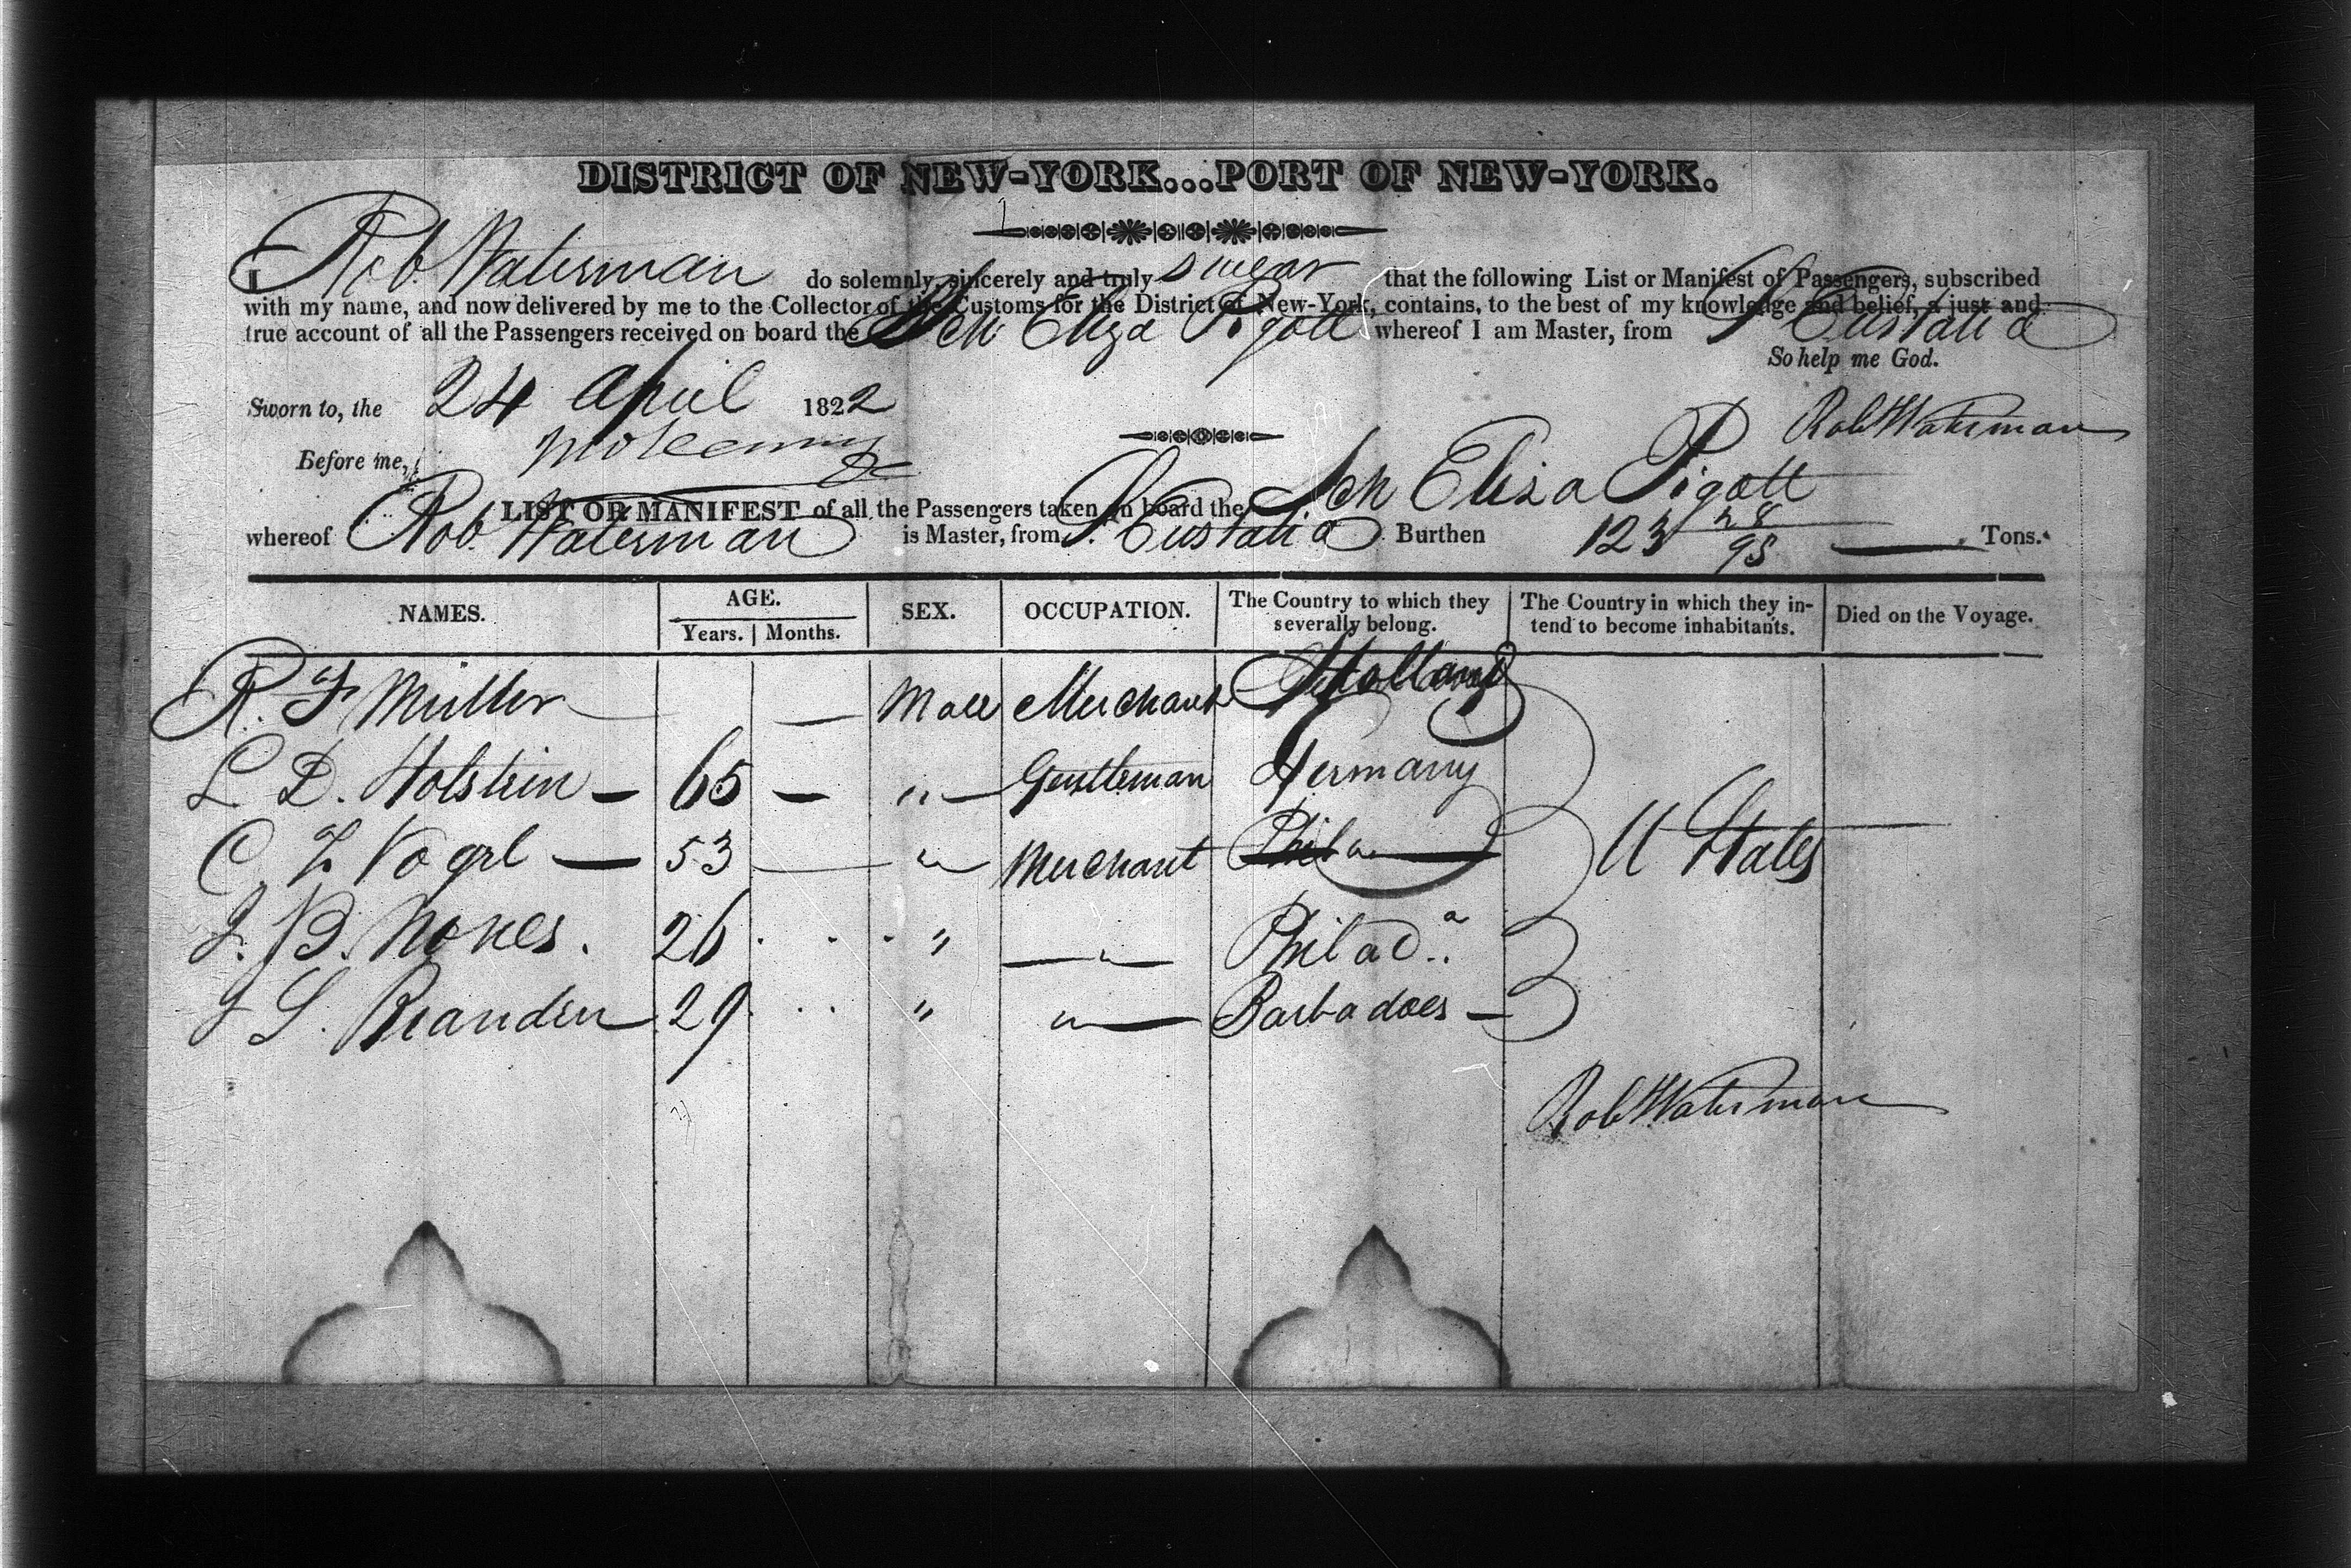 DISTRICT OF NEW-YORK...PORT OF NEW-YORK.
I Rob. Waterman do solemnly, sincerely and truly swear that the following List or Manifest of Passengers, subscribed
with my name, and now delivered by me to the Collector of the Customs for the District of New-York, contains, to the best of my knowledge and belief, a just and
true account of all the Passengers received on board the Sch Eliza Pigott whereof I am Master, from St Eustatia
So help me God.
Sworn to, the 24 April 1822
Rob Waterman
Before me,
LIST OR MANIFEST of all the Passengers taken on board the Sch Eliza Pigott
whereof Rob. Waterman is Master, from St. Eustatia Burthen 123 28/95 Tons.
NAMES. AGE. SEX. OCCUPATION. The Country to which they severally belong. The Country in which they intend to become inhabitants. Died on the Voyage.
Years. Months.
R. F Muller — Male Merchant Holland
L D. Holstein — 65 — " — Gentleman Germany
C. F Vogel — 53 — " — Merchant Phila U States
J. B. Nones. 26 . . . " — " — Philad.a
J S. Brandon 29 . . . " " — Barbadoes —
Rob Waterman